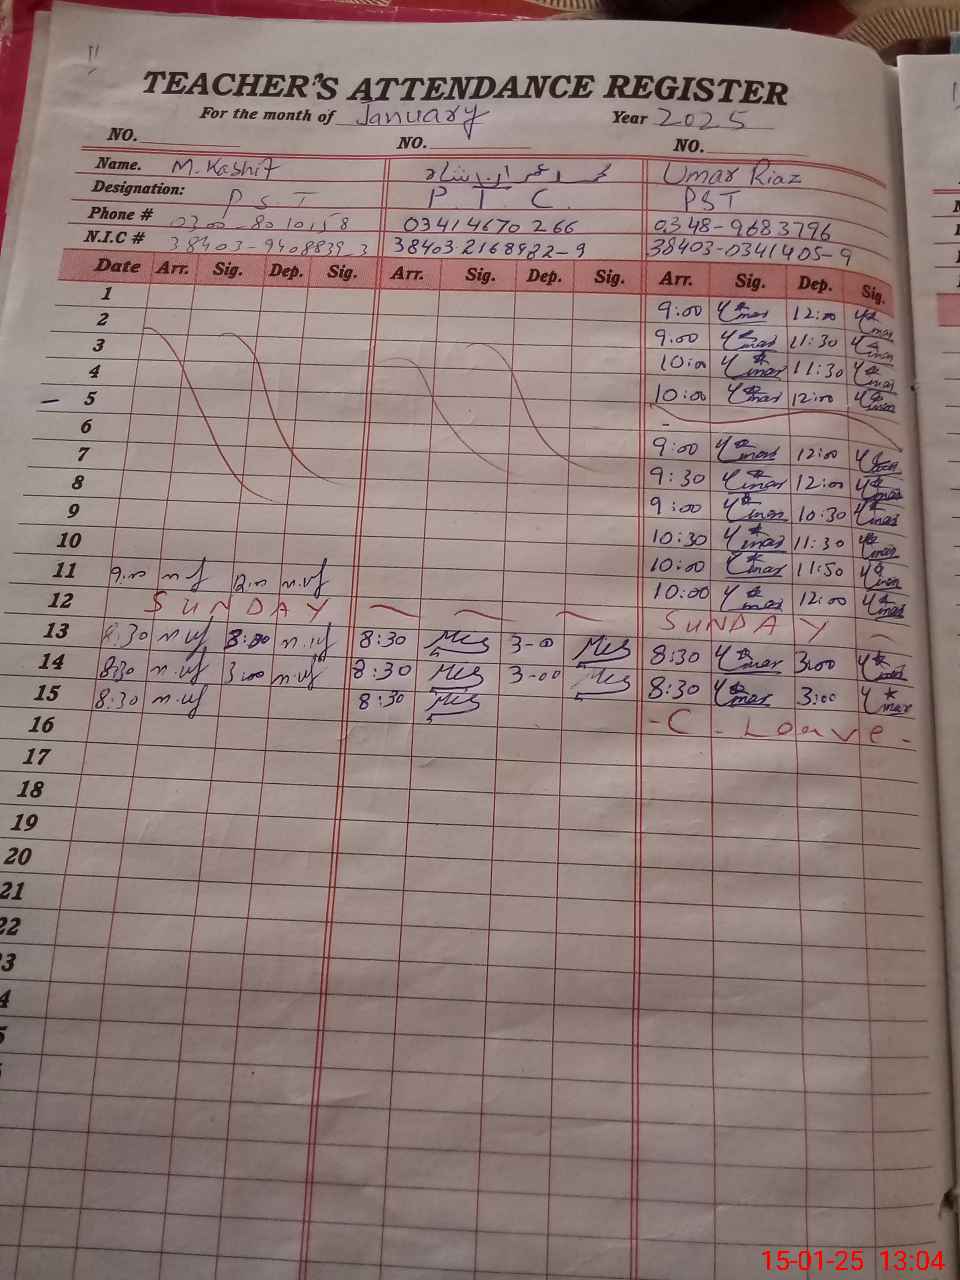 TEACHER'S ATTENDANCE REGISTER
For the month of January Year 2025
NO. NO. NO.
Name. M. Kashif محمد عمران شاہ Umar Riaz
Designation: P S T P. T. C. PST
Phone # 03414670266 0348-9683796
N.I.C # 38403-9408839-3 38403-2168922-9 38403-0341405-9
Date Arr. Sig. Dep. Sig. Arr. Sig. Dep. Sig. Arr. Sig. Dep. Sig.
1 9:00 Umar 12:00 Umar
2 9:00 Umar 11:30 Umar
3 10:00 Umar 11:30 Umar
4 10:00 Umar 12:00 Umar
- 5 -
6 9:00 Umar 12:00 Umar
7 9:30 Umar 12:00 Umar
8 9:00 Umar 10:30 Umar
9 10:30 Umar 11:30 Umar
10 10:00 Umar 11:50 Umar
11 9:00 12:00 10:00 Umar 12:00 Umar
12 SUNDAY SUNDAY
13 8:30 3:00 8:30 3-00 8:30 Umar 3:00 Umar
14 8:30 3:00 8:30 3-00 8:30 Umar 3:00 Umar
15 8:30 8:30 - C - Leave -
16
17
18
19
20
21
22
3
4
5
15-01-25 13:04